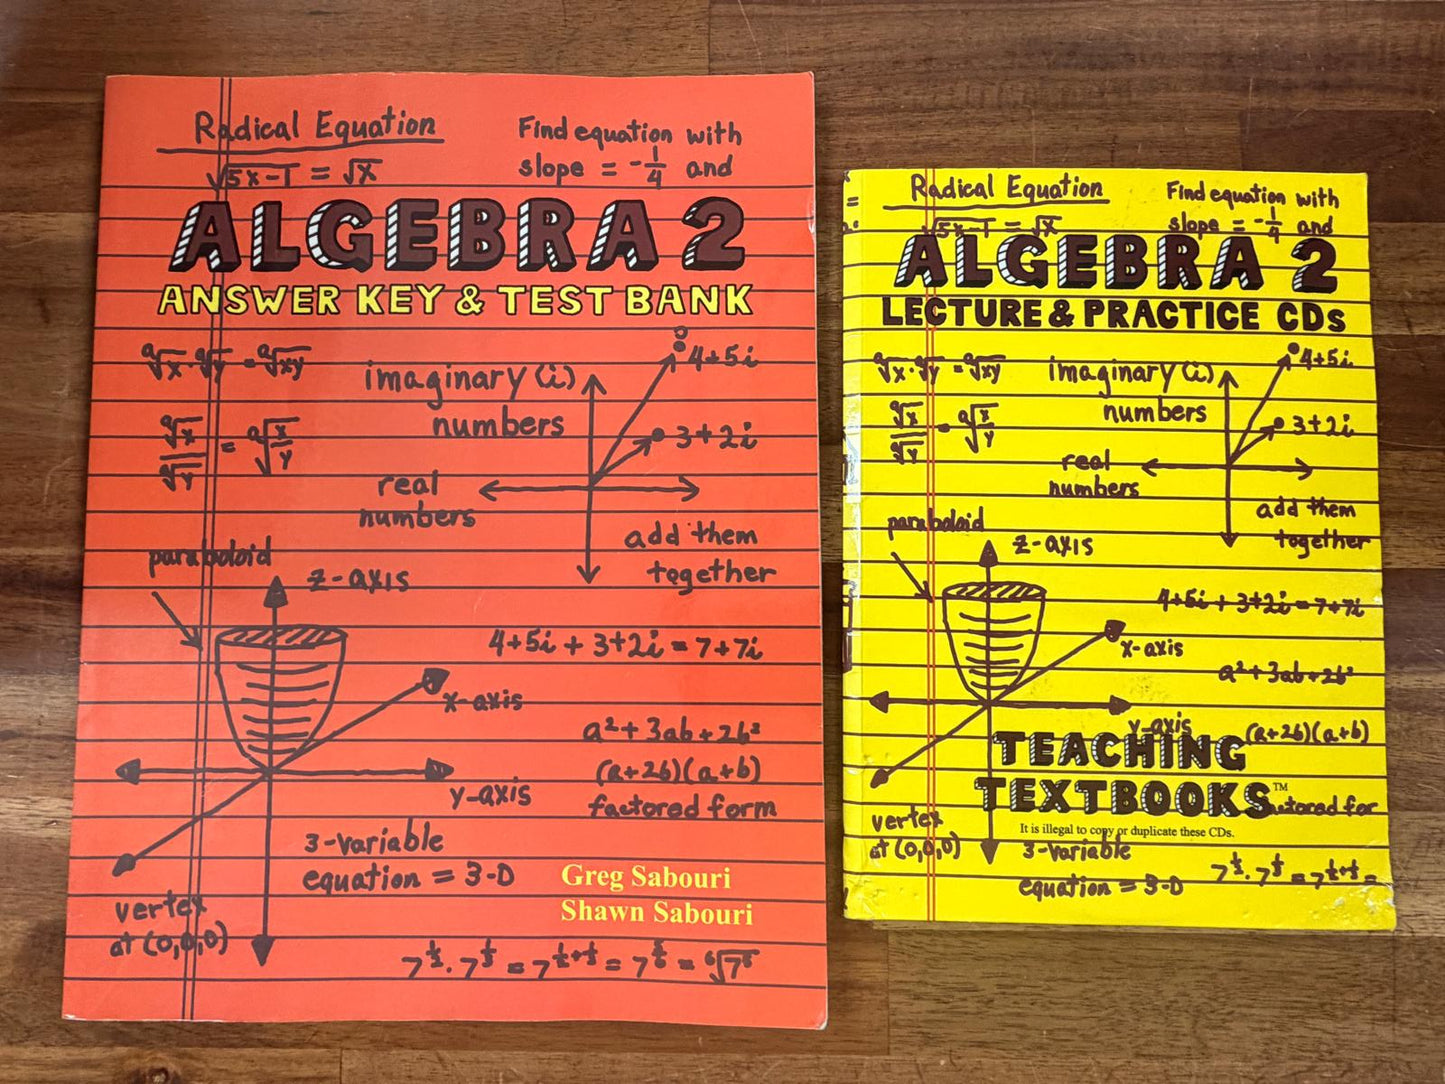 Radical Equation
√5x-1 = √x
Find equation with
slope = -1/4 and
ALGEBRA 2
ANSWER KEY & TEST BANK
ⁿ√x · ⁿ√y = ⁿ√xy
ⁿ√x / ⁿ√y = ⁿ√x/y
imaginary (i)
numbers
4+5i
3+2i
real
numbers
add them
together
paraboloid
z-axis
4+5i + 3+2i = 7+7i
x-axis
a² + 3ab + 2b²
(a+2b)(a+b)
factored form
y-axis
3-variable
equation = 3-D
vertex
at (0,0,0)
Greg Sabouri
Shawn Sabouri
Radical Equation
√5x-1 = √x
Find equation with
slope = -1/4 and
ALGEBRA 2
LECTURE & PRACTICE CDs
ⁿ√x · ⁿ√y = ⁿ√xy
ⁿ√x / ⁿ√y = ⁿ√x/y
imaginary (i)
numbers
4+5i
3+2i
real
numbers
add them
together
paraboloid
z-axis
4+5i + 3+2i = 7+7i
x-axis
a² + 3ab + 2b²
y-axis
(a+2b)(a+b)
TEACHING
TEXTBOOKS™
It is illegal to copy or duplicate these CDs.
vertex
at (0,0,0)
3-variable
equation = 3-D